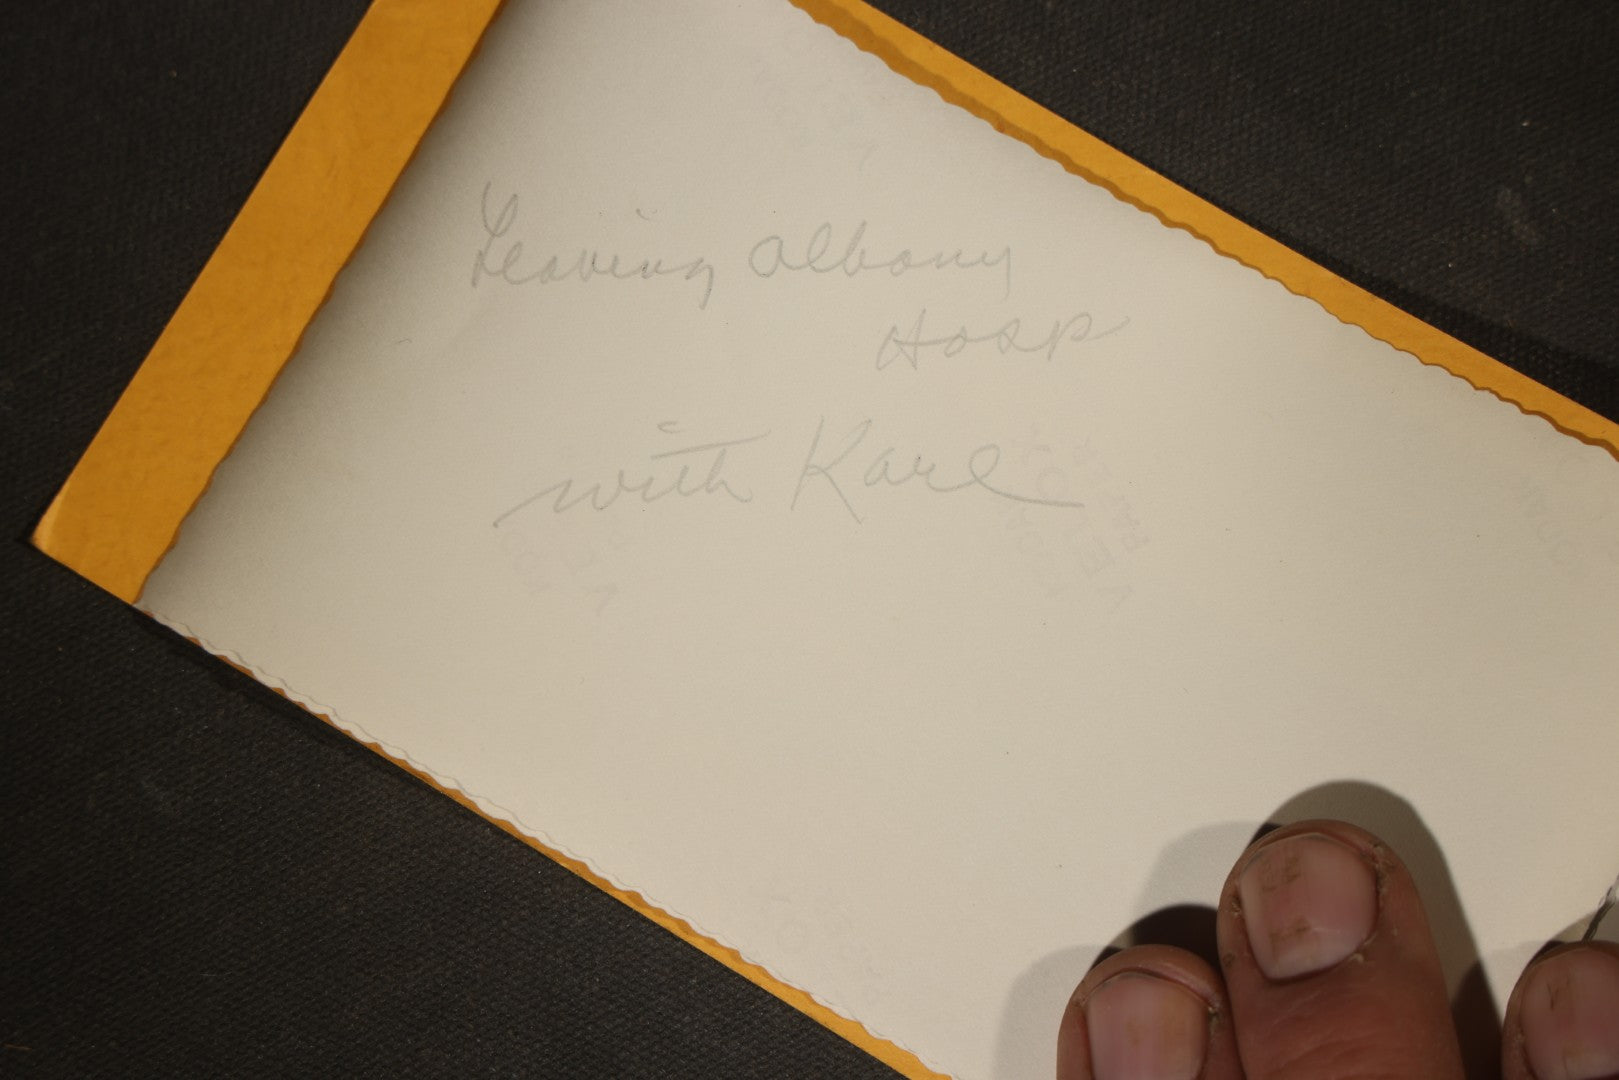 Leaving Albany
Hosp
with Karl